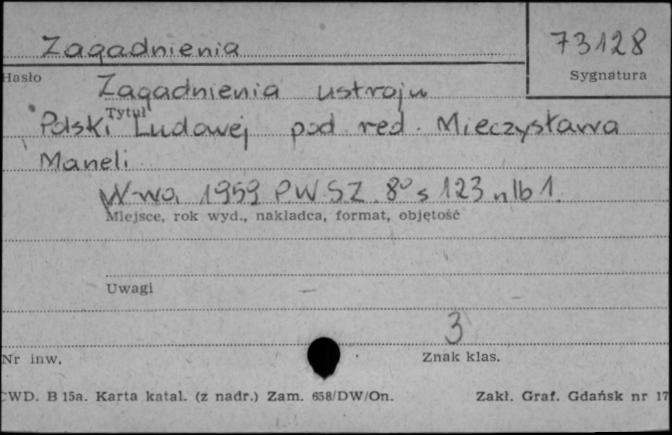 Zagadnienia
73128
Hasło
Sygnatura
Zagadnienia ustroju
Tytuł
Polski Ludowej pod red. Mieczysława
Maneli
W-wa 1959 PWSZ. 8° s 123 nlb 1.
Miejsce, rok wyd., nakładca, format, objętość
Uwagi
3
Nr inw.
Znak klas.
CWD. B 15a. Karta katal. (z nadr.) Zam. 658/DW/On.
Zakł. Graf. Gdańsk nr 17